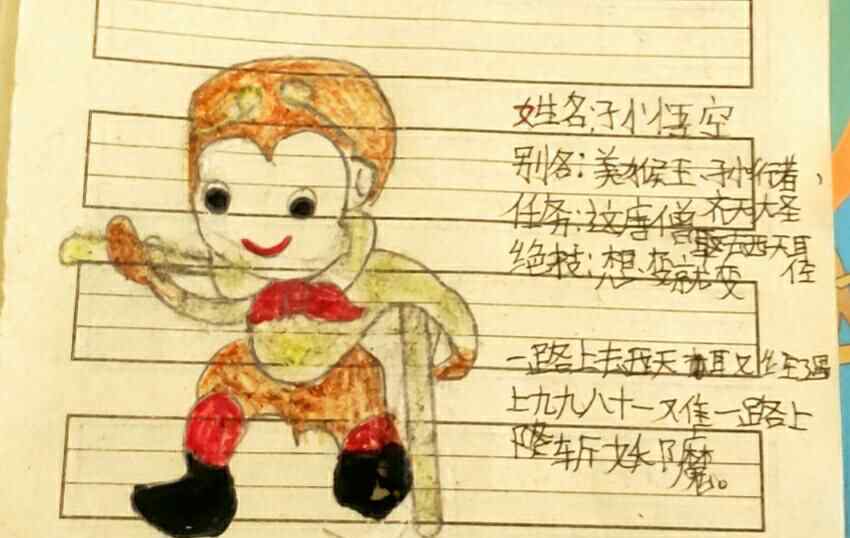 姓名:孙悟空
别名:美猴王、孙行者、
齐天大圣
任务:送唐僧去西天取经
绝技:想变就变
一路上去西天取经遇
上九九八十一难一路上
降斩妖魔。